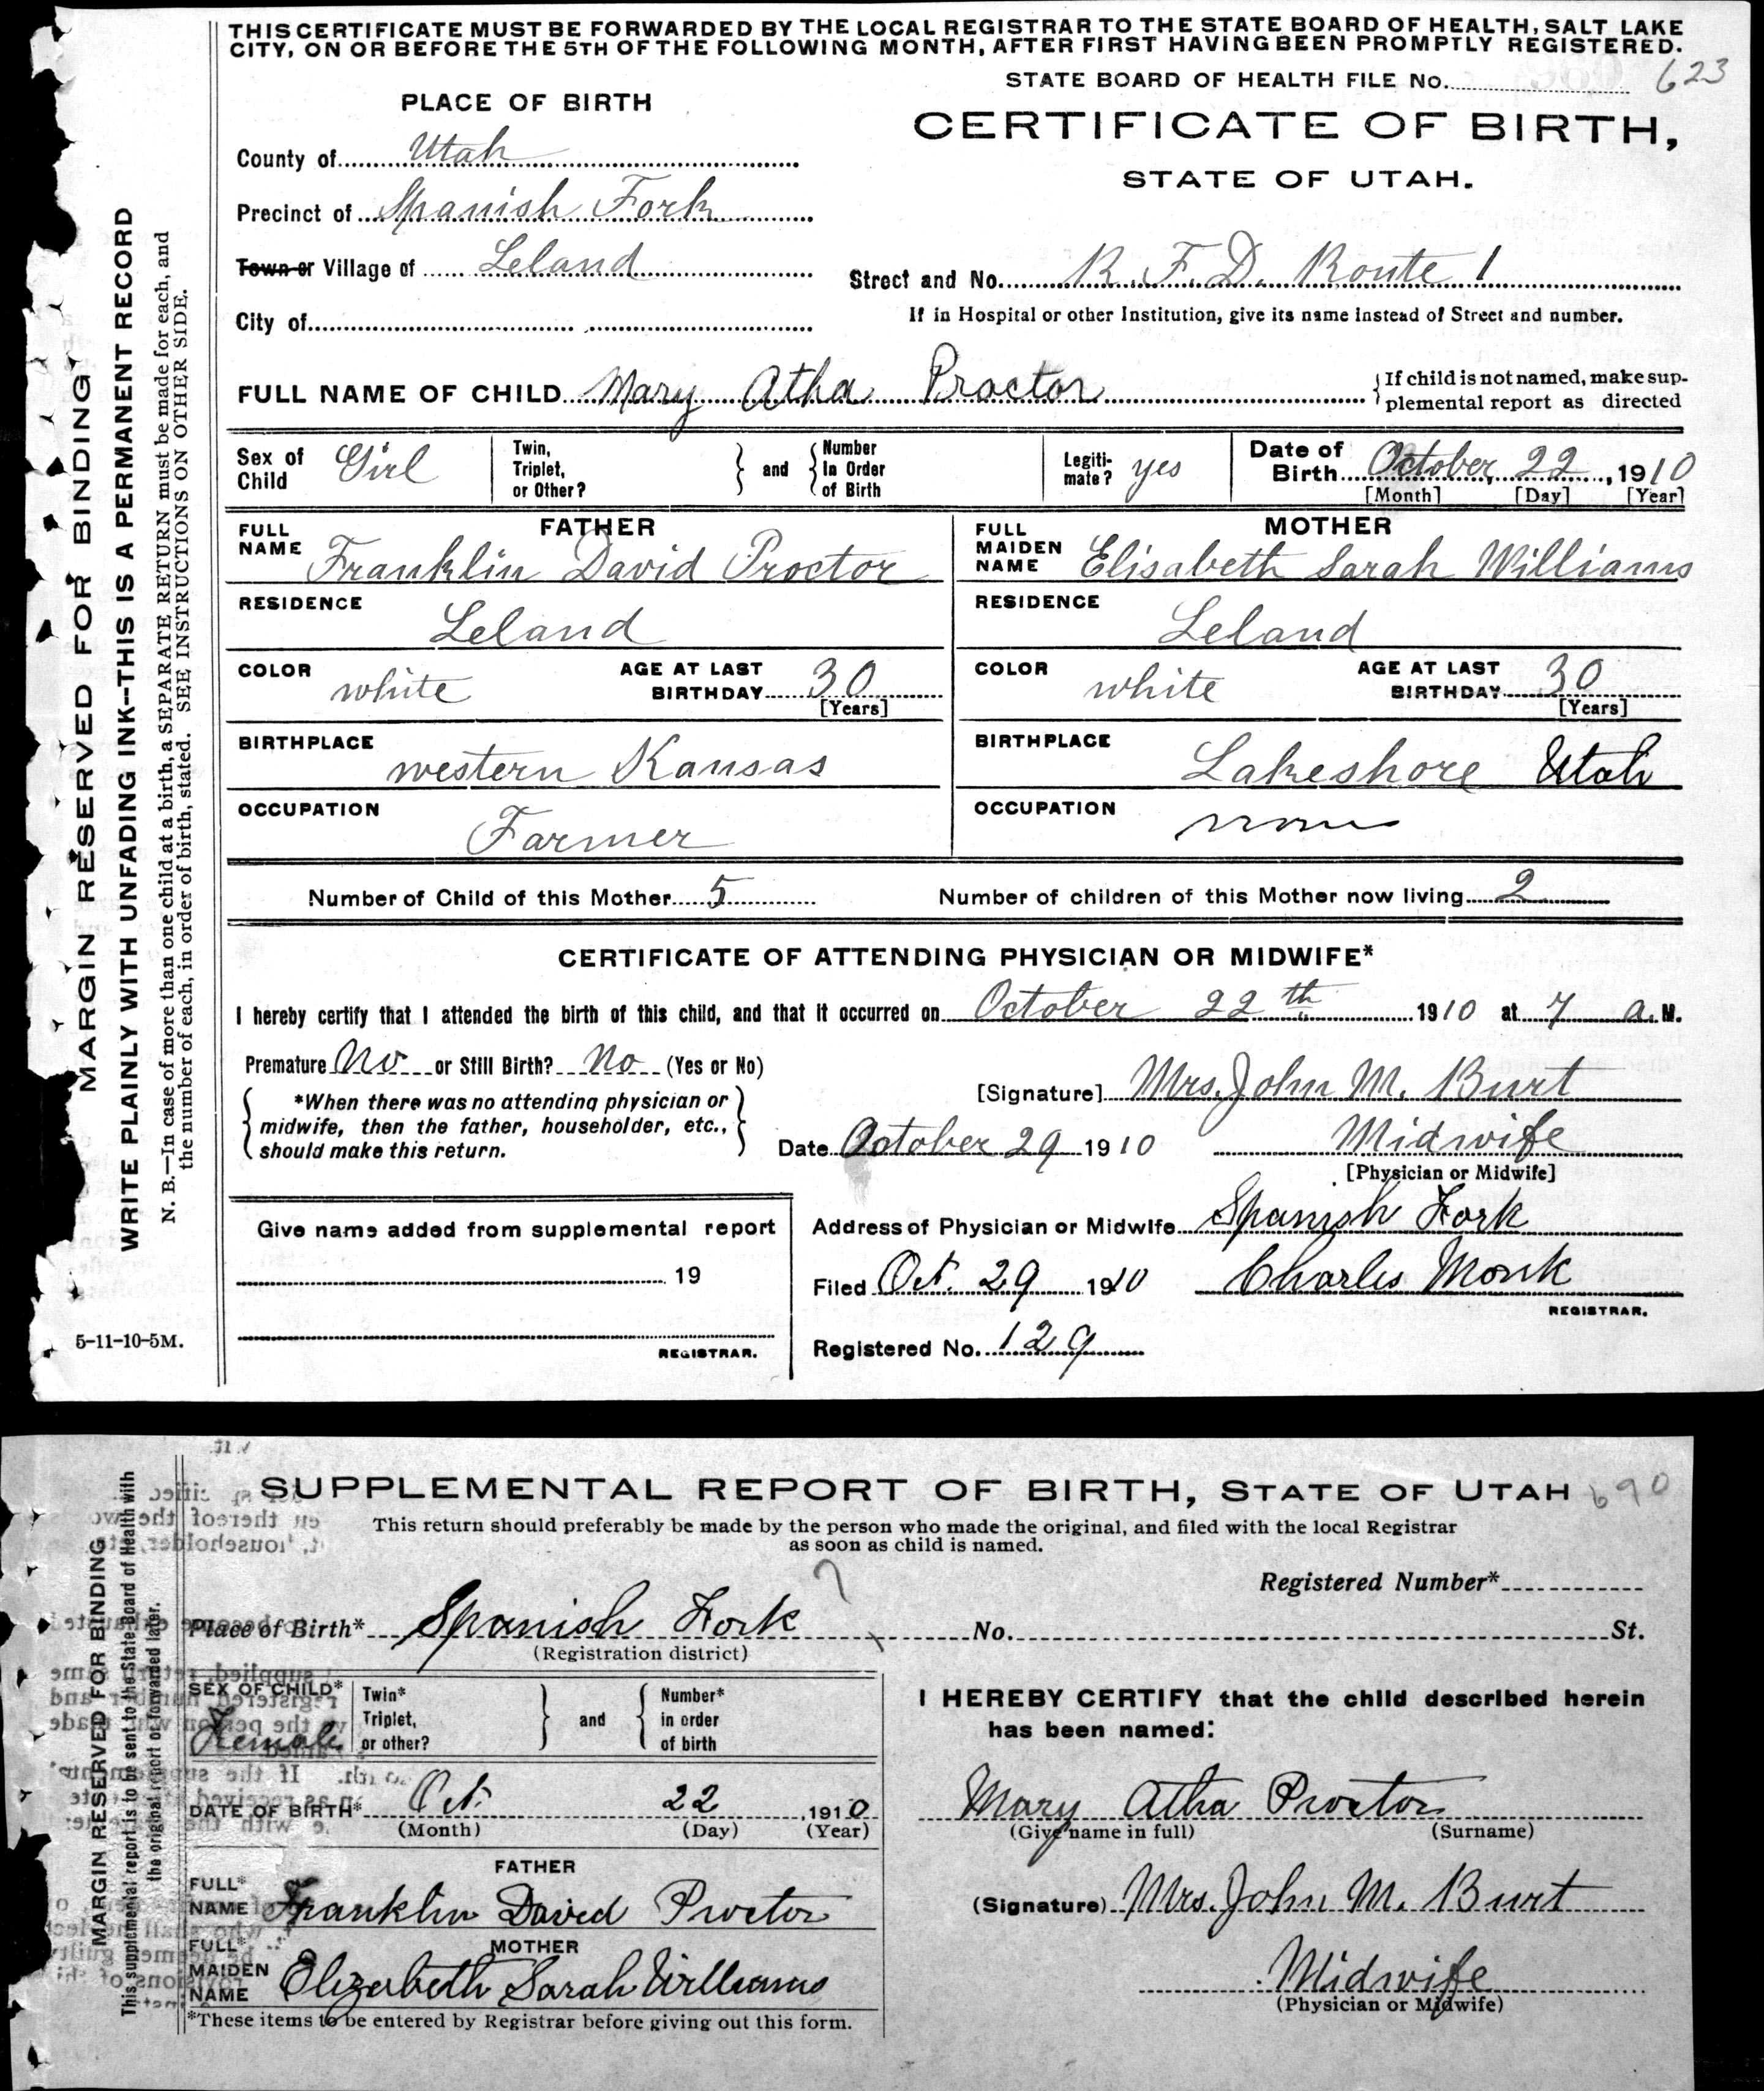 THIS CERTIFICATE MUST BE FORWARDED BY THE LOCAL REGISTRAR TO THE STATE BOARD OF HEALTH, SALT LAKE
CITY, ON OR BEFORE THE 5TH OF THE FOLLOWING MONTH, AFTER FIRST HAVING BEEN PROMPTLY REGISTERED.
STATE BOARD OF HEALTH FILE No. 623
PLACE OF BIRTH
CERTIFICATE OF BIRTH,
STATE OF UTAH.
County of Utah
Precinct of Spanish Fork
Town or Village of Leland
Street and No. R. F. D. Route 1
City of
If in Hospital or other Institution, give its name instead of Street and number.
FULL NAME OF CHILD Mary Atha Proctor
If child is not named, make sup-
plemental report as directed
Sex of Child Girl
Twin, Triplet, or Other? and Number In Order of Birth
Legiti-mate? yes
Date of Birth October 22, 1910
[Month] [Day] [Year]
FATHER
FULL NAME Franklin David Proctor
RESIDENCE Leland
COLOR white AGE AT LAST BIRTHDAY 30
[Years]
BIRTHPLACE western Kansas
OCCUPATION Farmer
MOTHER
FULL MAIDEN NAME Elisabeth Sarah Williams
RESIDENCE Leland
COLOR white AGE AT LAST BIRTHDAY 30
[Years]
BIRTHPLACE Lakeshore Utah
OCCUPATION none
Number of Child of this Mother 5 Number of children of this Mother now living 2
CERTIFICATE OF ATTENDING PHYSICIAN OR MIDWIFE*
I hereby certify that I attended the birth of this child, and that it occurred on October 22th 1910 at 7 a.M.
Premature No or Still Birth? No (Yes or No)
*When there was no attending physician or
midwife, then the father, householder, etc.,
should make this return.
[Signature] Mrs. John M. Burt
Date October 29 1910 Midwife
[Physician or Midwife]
Give name added from supplemental report
19
REGISTRAR.
Address of Physician or Midwife Spanish Fork
Filed Oct. 29 1910 Charles Monk
REGISTRAR.
Registered No. 129
MARGIN RESERVED FOR BINDING
WRITE PLAINLY WITH UNFADING INK--THIS IS A PERMANENT RECORD
N. B.—In case of more than one child at a birth, a SEPARATE RETURN must be made for each, and
the number of each, in order of birth, stated. SEE INSTRUCTIONS ON OTHER SIDE.
5-11-10-5M.
SUPPLEMENTAL REPORT OF BIRTH, STATE OF UTAH 690
This return should preferably be made by the person who made the original, and filed with the local Registrar
as soon as child is named.
Registered Number*
Place of Birth* Spanish Fork No. St.
(Registration district)
SEX OF CHILD* Female
Twin* Triplet, or other? and Number* in order of birth
DATE OF BIRTH* Oct. 22 1910
(Month) (Day) (Year)
FATHER
FULL* NAME Franklin David Proctor
MOTHER
FULL* MAIDEN NAME Elizabeth Sarah Williams
*These items to be entered by Registrar before giving out this form.
I HEREBY CERTIFY that the child described herein
has been named:
Mary Atha Proctor
(Give name in full) (Surname)
(Signature) Mrs. John M. Burt
Midwife
(Physician or Midwife)
MARGIN RESERVED FOR BINDING
This supplemental report is to be sent to the State Board of Health with
the original report or forwarded later.